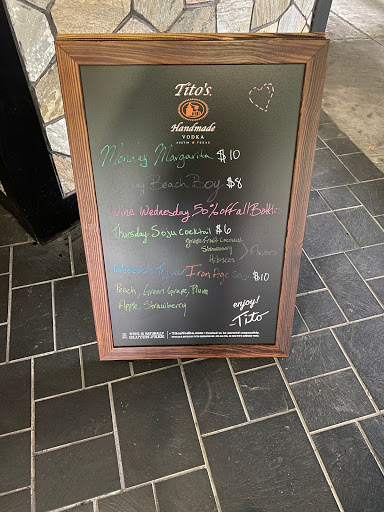 Tito's
Handmade
VODKA
AUSTIN TEXAS
Monday Margarita $10
Beach Boy $8
Wine Wednesday 50% off all Bottle
Thursday Soju Cocktail $6
Grape Fruit
Strawberry
Hibiscus
Flavors
Iron Age $10
Peach, Green Grape, Plum
Apple, Strawberry
enjoy!
-Tito
GLUTEN-FREE